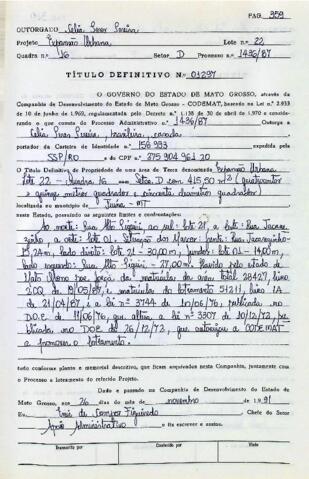 PAG. 359
OUTORGADO Célia Pires Pereira
Projeto Expansão Urbana Lote n.o 22
Quadra n.o 16 Setor D Processo n.o 1436/87
TÍTULO DEFINITIVO N.o 01297
O GOVERNO DO ESTADO DE MATO GROSSO, através da
Companhia de Desenvolvimento do Estado de Mato Grosso - CODEMAT, baseado na Lei n.o 2.933
de 10 de junho de 1.969, regulamentada pelo Decreto n.o 1.138 de 30 de abril de 1.970 e considerando
o que consta do Processo Administrativo n.o 1436/87 Outorga a
Célia Pires Pereira, brasileira, casada
portador da Carteira de Identidade n.o 156 933 expedida pela
SSP/RO e do CPF n.o 375 904 961 20
O Título Definitivo de Propriedade de uma área de Terra denominada Expansão Urbana
Lote 22 - Quadra 16 - Setor D com 415,50 m2 (quatrocentos
e quinze metros quadrados e cinquenta decímetros quadrados)
localizada no município de Juína - MT
neste Estado, possuindo os seguintes limites e confrontações:
Ao norte: Rua ao sul: lote 21, a leste: Rua
a oeste: lote 01. Situação dos Marcos: frente: Rua
15,24m, lado direito: lote 21 - 30,00m, fundos: lote 01 - 14,00m,
lado esquerdo: Rua 27,00m. Havido pelo estado de
Mato Grosso por força de matrículas da área total 28427, livro
2CQ de 19/05/87, e matrícula do loteamento 51211, livro 1A
de 21/04/87, e a lei n.o 3744 de 10/06/76, publicada no
D.O.E. de 11/06/76, que altera a lei n.o 3307 de 10/12/72, publicada
no D.O.E. de 26/12/73, que autorizou a CODEMAT
a promover o loteamento.
tudo conforme planta e memorial descritivo, que ficam arquivados nesta Companhia, juntamente com
o Processo a loteamento do referido Projeto.
Dado e passado na Companhia de Desenvolvimento do Estado de
Mato Grosso, aos 26 dias do mês de novembro de 1991
Eu, de Campos Figueiredo Chefe do Setor
Apoio Administrativo o fiz escrever e assino.
Transcrito por Conferido por Visto